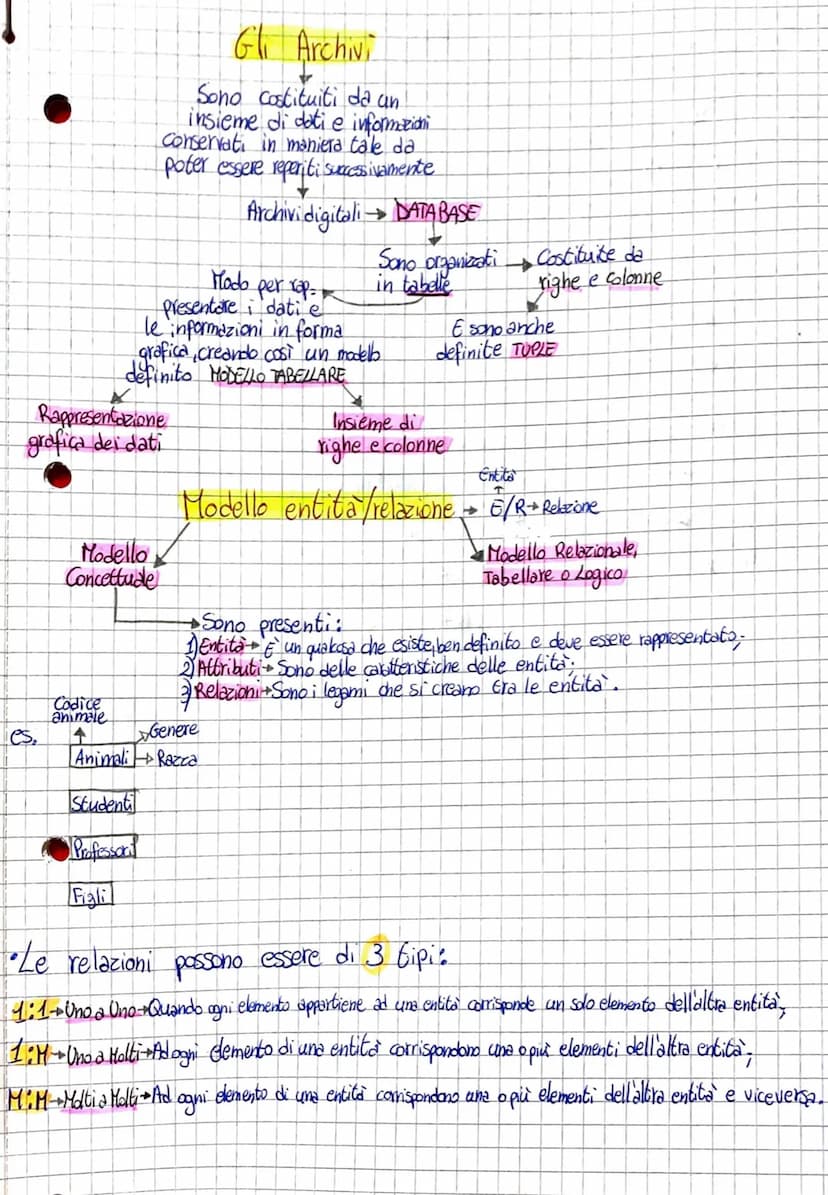 Gli Archivi
Sono costituiti da un
insieme di dati e informazioni
conservati in maniera tale da
poter essere reperiti successivamente
Archivi digitali → DATABASE
Sono organizzati → Costituite da
in tabelle
righe e colonne
Modo per rap-
presentare i dati e
le informazioni in forma
grafica, creando così un modello
definito MODELLO TABELLARE
E sono anche
definite TUPLE
Rappresentazione
grafica dei dati
Insieme di
righe e colonne
Entità
Modello entità/relazione → E/R → Relazione
Modello
Concettuale
Modello Relazionale,
Tabellare o Logico
Sono presenti:
1) Entità → E' un qualcosa che esiste, ben definito e deve essere rappresentato;
2) Attributi → Sono delle caratteristiche delle entità;
3) Relazioni → Sono i legami che si creano tra le entità.
Codice
animale
es.
Genere
Animali → Razza
Studenti
Professori
Figli
•Le relazioni possono essere di 3 tipi:
1:1 → Uno a Uno → Quando ogni elemento appartiene ad una entità corrisponde un solo elemento dell'altra entità;
1:M → Uno a Molti → Ad ogni elemento di una entità corrispondono una o più elementi dell'altra entità;
M:M → Molti a Molti → Ad ogni elemento di una entità corrispondono una o più elementi dell'altra entità e viceversa.